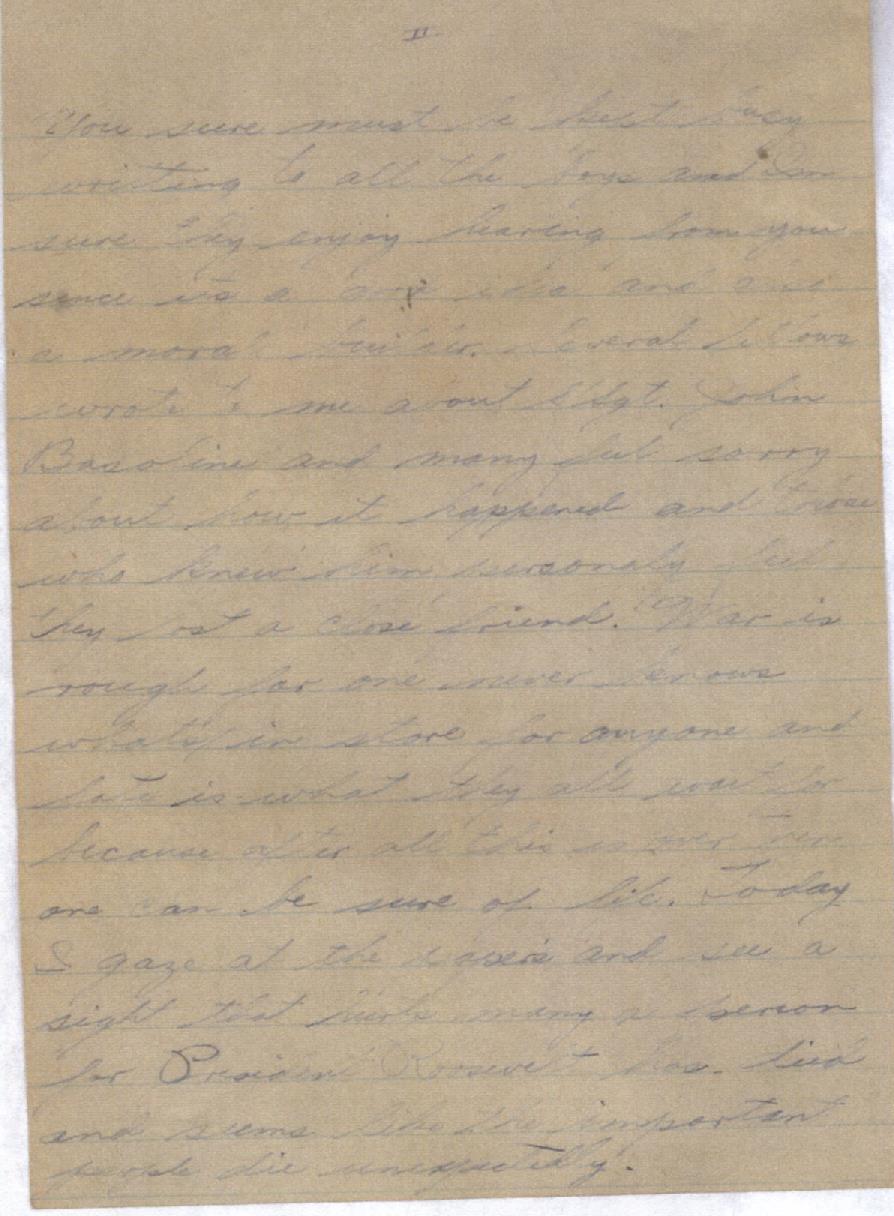 II
You sure must be kept busy
writing to all the boys and Im
sure they enjoy hearing from you
since its a good idea and also
a moral builder. Several fellows
wrote to me about S/Sgt. John
Basoline and many feel sorry
about how it happened and those
who knew him personaly feel
they lost a close friend. War is
rough for one never knows
what's in store for anyone and
fate is what they all wait for
because after all this is over then
one can be sure of life. Today
I gaze at the papers and see a
sight that hurts many a person
for President Roosevelt has died
and seems like the important
people die unexpectedly.